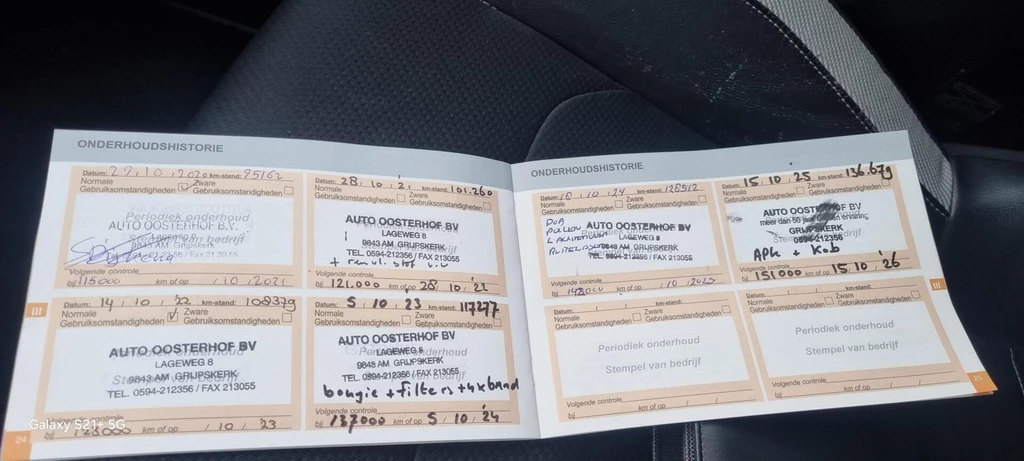 ONDERHOUDSHISTORIE
Datum: 27, 10, 2020 km-stand: 95162
Normale Gebruiksomstandigheden Zware Gebruiksomstandigheden
Periodiek onderhoud
AUTO OOSTERHOF B.V.
Stempel van bedrijf
Volgende controle
bij 115000 km of op / 10 / 2021
Datum: 28, 10, 21 km-stand: 101.260
Normale Gebruiksomstandigheden Zware Gebruiksomstandigheden
AUTO OOSTERHOF BV
LAGEWEG 8
9843 AM GRIJPSKERK
TEL. 0594-212356 / FAX 213055
Volgende controle
bij 121.000 km of op 28 10, 22
III
Datum: 14 / 10 / '22 km-stand: 108379
Normale Gebruiksomstandigheden Zware Gebruiksomstandigheden
Periodiek onderhoud
AUTO OOSTERHOF BV
LAGEWEG 8
9843 AM GRIJPSKERK
Stempel van bedrijf
TEL. 0594-212356 / FAX 213055
Volgende controle
bij 123000 km of op / 10 / 23
Datum: 5 / 10 / 23 km-stand: 117277
Normale Gebruiksomstandigheden Zware Gebruiksomstandigheden
AUTO OOSTERHOF BV
Periodiek onderhoud
LAGEWEG 8
9843 AM GRIJPSKERK
Stempel van bedrijf
TEL. 0594-212356 / FAX 213055
bougie + filters + 4x band
Volgende controle
bij 137000 km of op 5 / 10 / '24
24
Galaxy S21+ 5G
ONDERHOUDSHISTORIE
Datum: 18, 10, 24 km-stand: 126512
Normale Gebruiksomstandigheden Zware Gebruiksomstandigheden
AUTO OOSTERHOF BV
LAGEWEG 8
9843 AM GRIJPSKERK
TEL. 0594-212356 / FAX 213055
Volgende controle
bij km of op / 10 / 2025
Datum: 15, 10, 25 km-stand: 136.679
Normale Gebruiksomstandigheden Zware Gebruiksomstandigheden
AUTO OOSTERHOF BV
meer dan 50 jaar ervaring
GRIJPSKERK
0594-212356
APK + Kob
Volgende controle
bij 151000 km of op 15, 10, '26
III
Datum: / / km-stand:
Normale Gebruiksomstandigheden Zware Gebruiksomstandigheden
Periodiek onderhoud
Stempel van bedrijf
Volgende controle
bij km of op / /
Datum: / / km-stand:
Normale Gebruiksomstandigheden Zware Gebruiksomstandigheden
Periodiek onderhoud
Stempel van bedrijf
Volgende controle
bij km of op / /
25